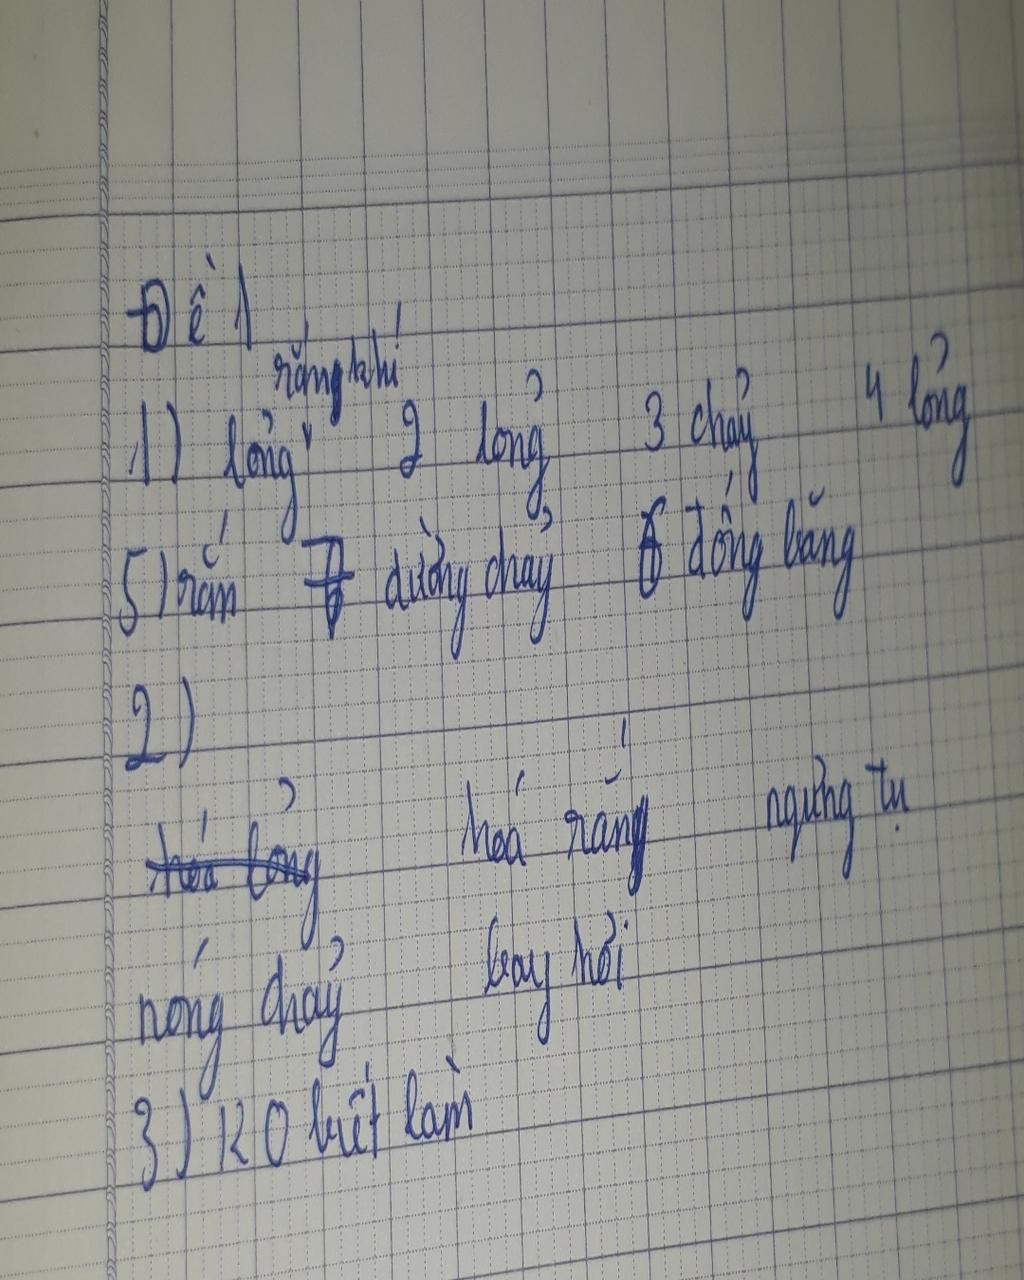 Đề 1
rắng khí
1) lỏng v 2 lỏng 3 chảy 4 lỏng
5) rắn 7 dưỡng chảy 6 đống băng
2)
hoá lỏng hoá rắng ngưng tụ
nóng chảy bay hơi
3) K O biết làm